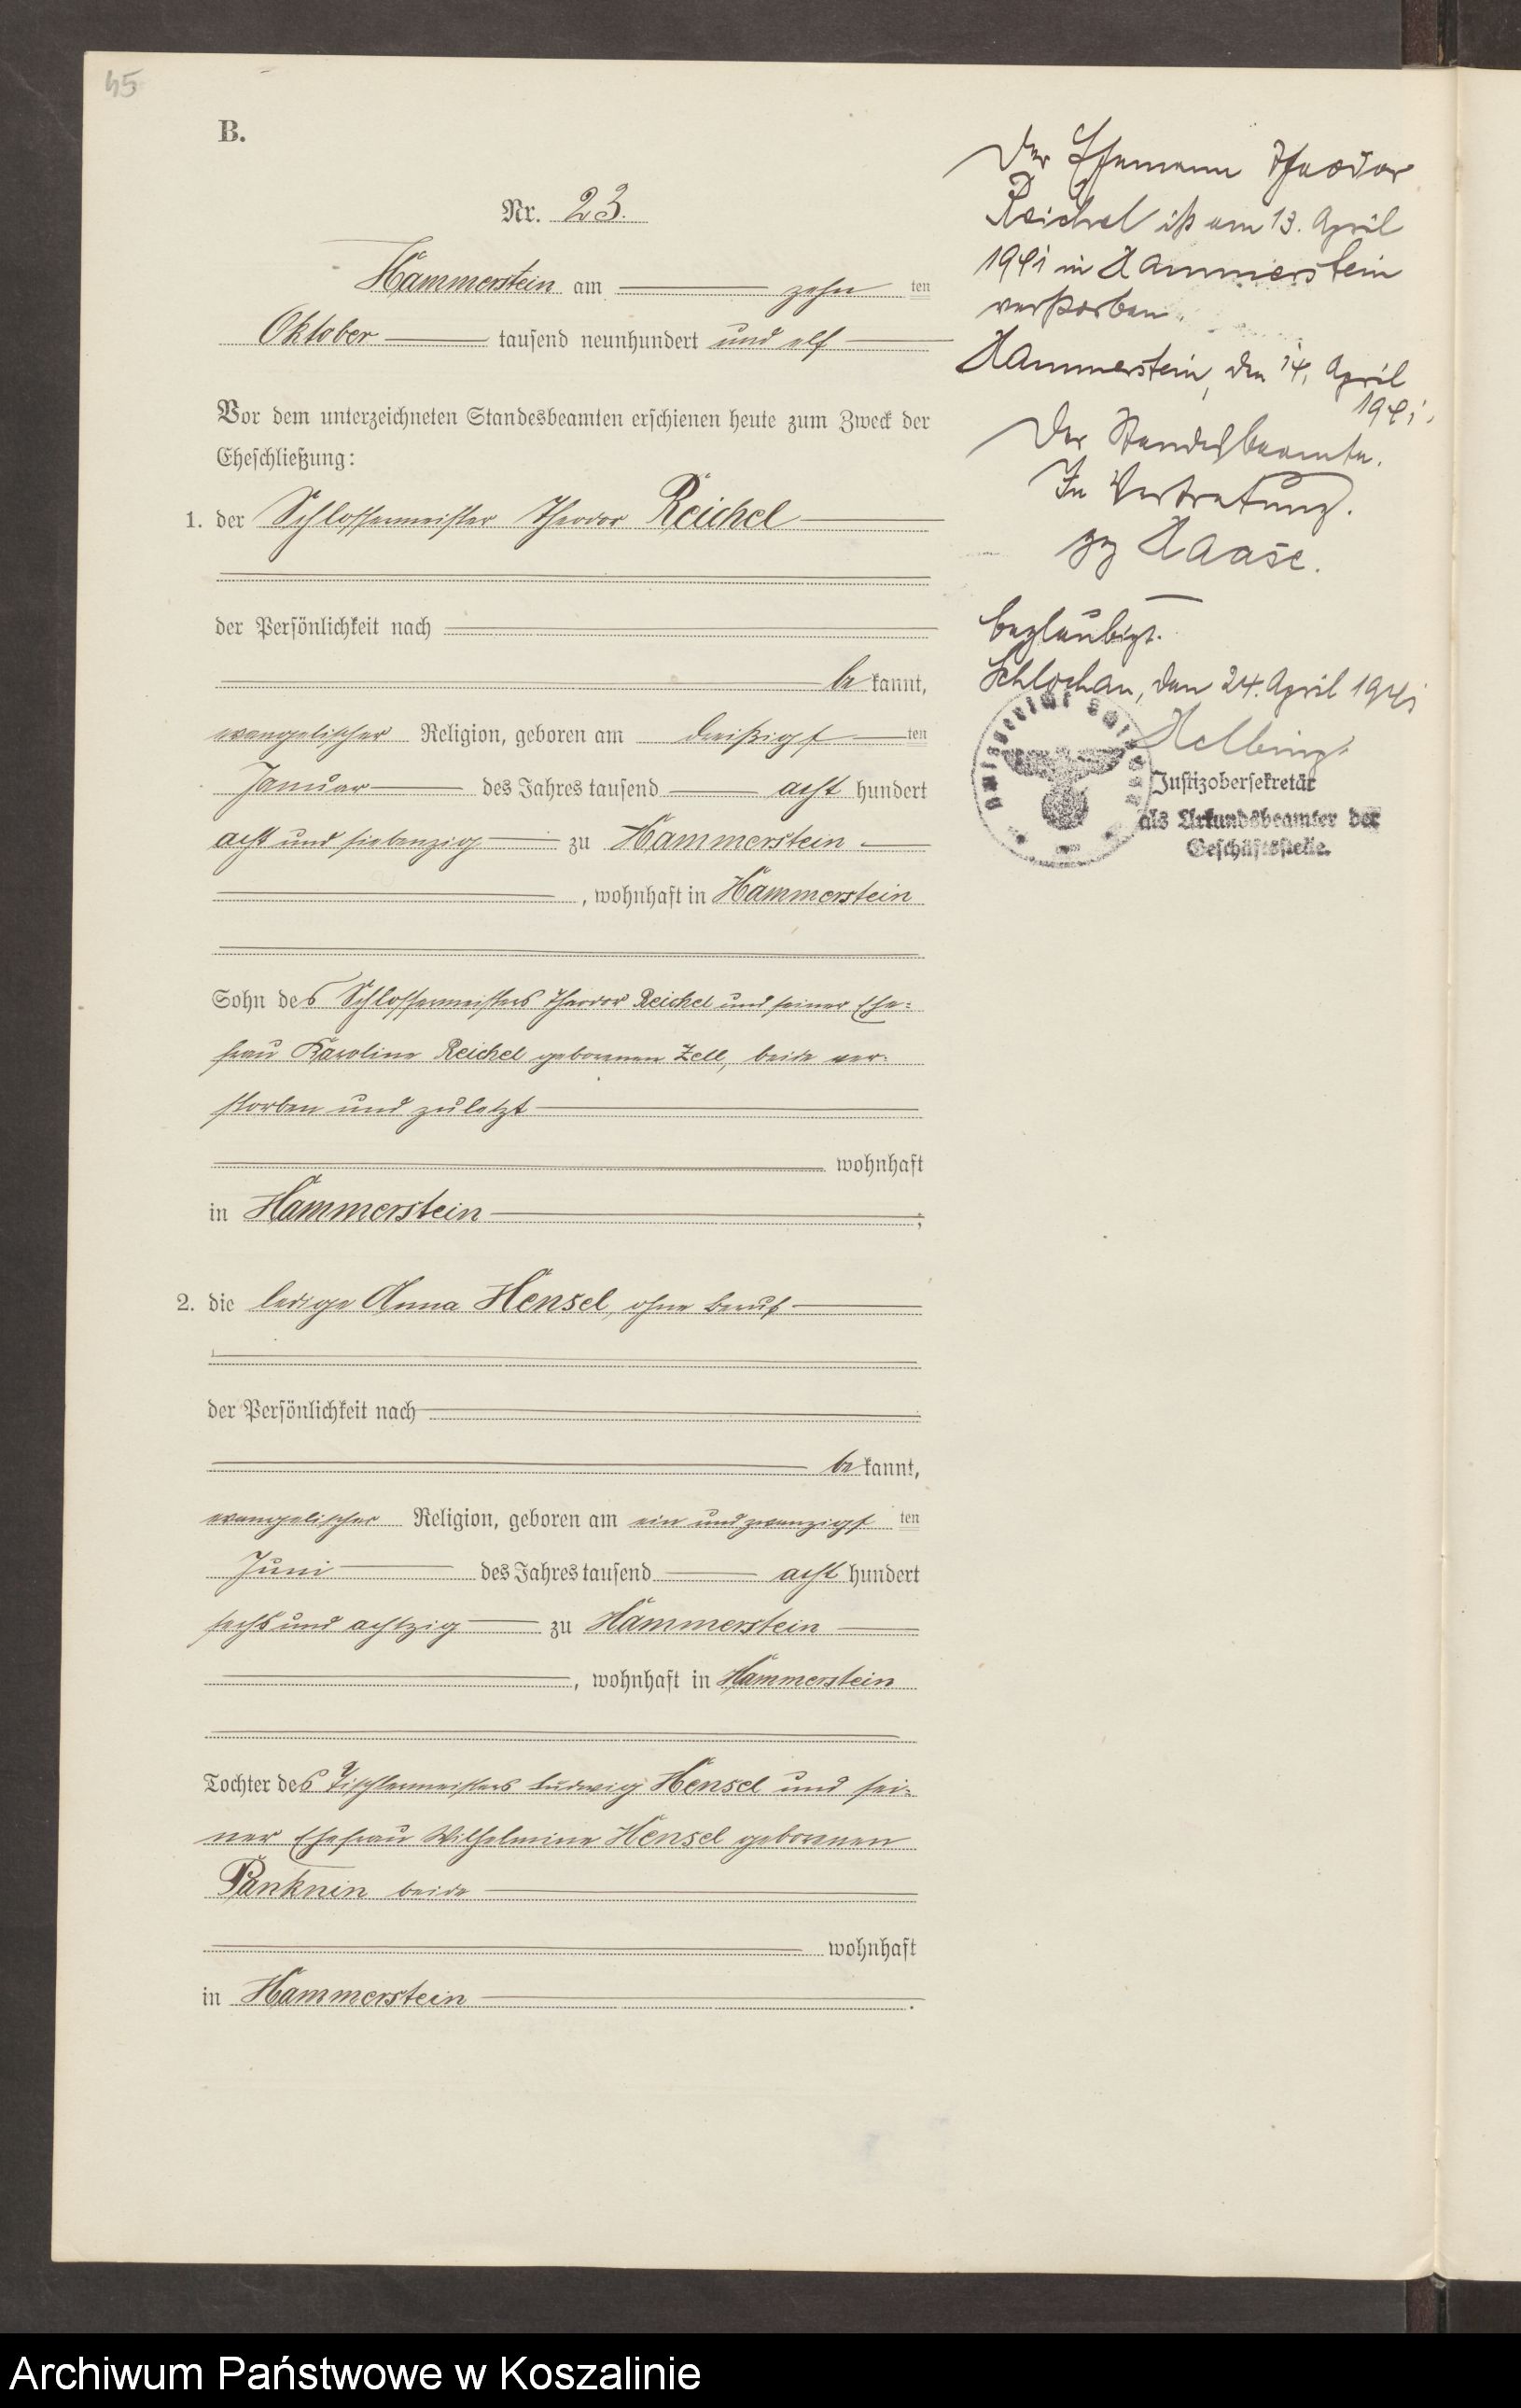 45
B.
Nr. 23.
Hammerstein am zehn ten
Oktober tausend neunhundert und elf
Vor dem unterzeichneten Standesbeamten erschienen heute zum Zweck der
Eheschließung:
1. der Schlossermeister Theodor Reichel
der Persönlichkeit nach
be kannt,
evangelischer Religion, geboren am dreißigs ten
Januar des Jahres tausend acht hundert
acht und siebenzig zu Hammerstein
, wohnhaft in Hammerstein
Sohn des Schlossermeisters Theodor Reichel und seiner Ehe-
frau Karoline Reichel geborenen Zell, beide ver-
storben und zuletzt
wohnhaft
in Hammerstein ;
2. die ledige Anna Hensel, ohne Beruf
der Persönlichkeit nach
be kannt,
evangelischer Religion, geboren am ein und zwanzigs ten
Juni des Jahres tausend acht hundert
sechs und achtzig zu Hammerstein
, wohnhaft in Hammerstein
Tochter des Tischlermeisters Ludwig Hensel und sei-
ner Ehefrau Wilhelmine Hensel geborenen
Panknin beide
wohnhaft
in Hammerstein .
Der Ehemann Theodor
Reichel ist am 13. April
1941 in Hammerstein
verstorben.
Hammerstein, den 14. April
1941.
Der Standesbeamte.
In Vertretung.
gez Haase.
Beglaubigt.
Schlochau, den 24. April 1941
Helbing
Justizobersekretär
als Urkundsbeamter der
Geschäftsstelle.
Archiwum Państwowe w Koszalinie